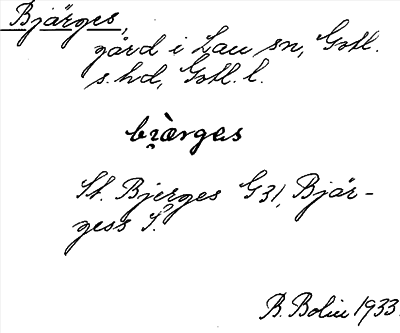 Bjärges,
gård i Lau sn, Gotl.
s. hd, Gotl. l.
bi̯àrges
St. Bjerges G31, Bjär-
gess S.
B. Bolin 1933.